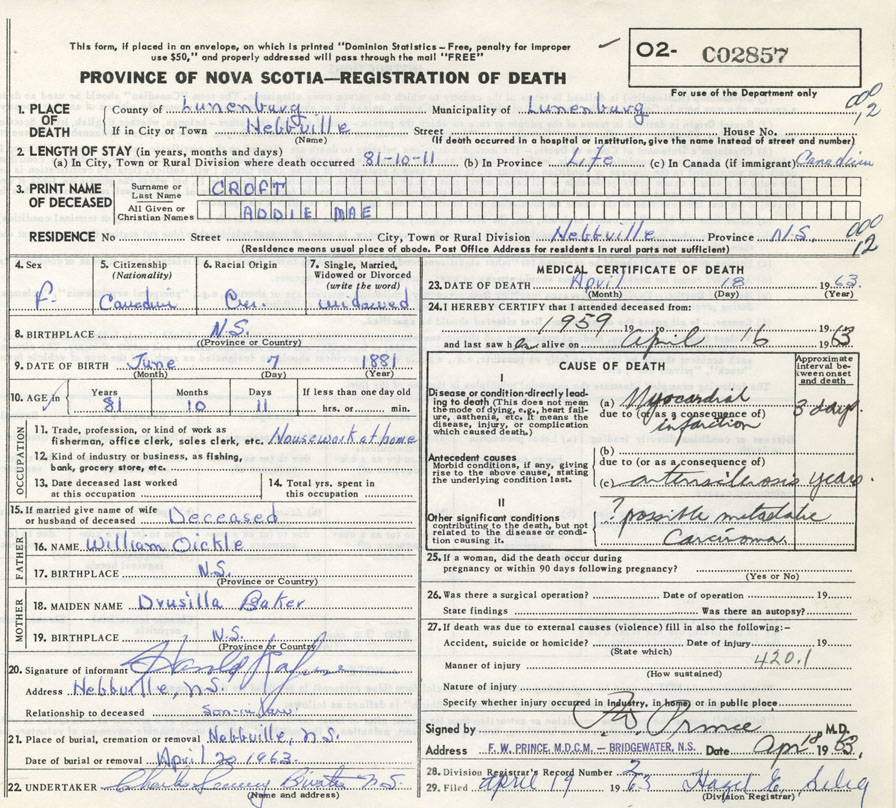 This form, if placed in an envelope, on which is printed "Dominion Statistics – Free, penalty for improper
use $50," and properly addressed will pass through the mail "FREE"
O2- C02857
PROVINCE OF NOVA SCOTIA—REGISTRATION OF DEATH
For use of the Department only
1. PLACE OF DEATH { County of Lunenburg Municipality of Lunenburg
000
12
If in City or Town Hebbville Street House No.
(Name) (If death occurred in a hospital or institution, give the name instead of street and number)
2. LENGTH OF STAY (in years, months and days)
(a) In City, Town or Rural Division where death occurred 81-10-11 (b) In Province Life (c) In Canada (if immigrant) Canadian
3. PRINT NAME OF DECEASED
Surname or Last Name CROFT
All Given or Christian Names ADDIE MAE
RESIDENCE No Street City, Town or Rural Division Hebbville Province N.S.
000
12
(Residence means usual place of abode. Post Office Address for residents in rural parts not sufficient)
4. Sex
F.
5. Citizenship
(Nationality)
6. Racial Origin
7. Single, Married,
Widowed or Divorced
(write the word)
widowed
8. BIRTHPLACE N.S.
(Province or Country)
9. DATE OF BIRTH June 7 1881
(Month) (Day) (Year)
10. AGE in Years Months Days If less than one day old
81 10 11 hrs. or min.
OCCUPATION
11. Trade, profession, or kind of work as
fisherman, office clerk, sales clerk, etc. Housework at home
12. Kind of industry or business, as fishing,
bank, grocery store, etc.
13. Date deceased last worked
at this occupation
14. Total yrs. spent in
this occupation
15. If married give name of wife
or husband of deceased Deceased
FATHER
16. NAME William Oickle
17. BIRTHPLACE N.S.
(Province or Country)
MOTHER
18. MAIDEN NAME Drusilla Baker
19. BIRTHPLACE N.S.
(Province or Country)
20. Signature of informant Harold
Address Hebbville, N.S.
Relationship to deceased son-in-law
21. Place of burial, cremation or removal Hebbville, N.S.
Date of burial or removal April 20 1963
22. UNDERTAKER N.S.
(Name and address)
MEDICAL CERTIFICATE OF DEATH
23. DATE OF DEATH April 18 1963.
(Month) (Day) (Year)
24. I HEREBY CERTIFY that I attended deceased from:
1959 19 to
and last saw her alive on April 16 1963
CAUSE OF DEATH
Approximate
interval be-
tween onset
and death
I
Disease or condition directly lead-
ing to death (This does not mean
the mode of dying, e.g., heart fail-
ure, asthenia, etc. It means the
disease, injury, or complication
which caused death.)
(a) Myocardial 3 days.
due to (or as a consequence of)
infarction
Antecedent causes
Morbid conditions, if any, giving
rise to the above cause, stating
the underlying condition last.
(b)
due to (or as a consequence of)
(c) arteriosclerosis years.
II
Other significant conditions
contributing to the death, but not
related to the disease or condi-
tion causing it.
? possible metastatic
Carcinoma
25. If a woman, did the death occur during
pregnancy or within 90 days following pregnancy?
(Yes or No)
26. Was there a surgical operation? Date of operation 19
State findings Was there an autopsy?
27. If death was due to external causes (violence) fill in also the following:–
Accident, suicide or homicide? Date of injury 19
(State which)
Manner of injury 420.1
(How sustained)
Nature of injury
Specify whether injury occurred in Industry, in home, or in public place
Signed by F.W. Prince M.D.
Address F. W. PRINCE, M.D.C.M. — BRIDGEWATER, N.S. Date Apr 18 1963.
28. Division Registrar's Record Number
29. Filed April 19 1963 Hazel
(Division Registrar)